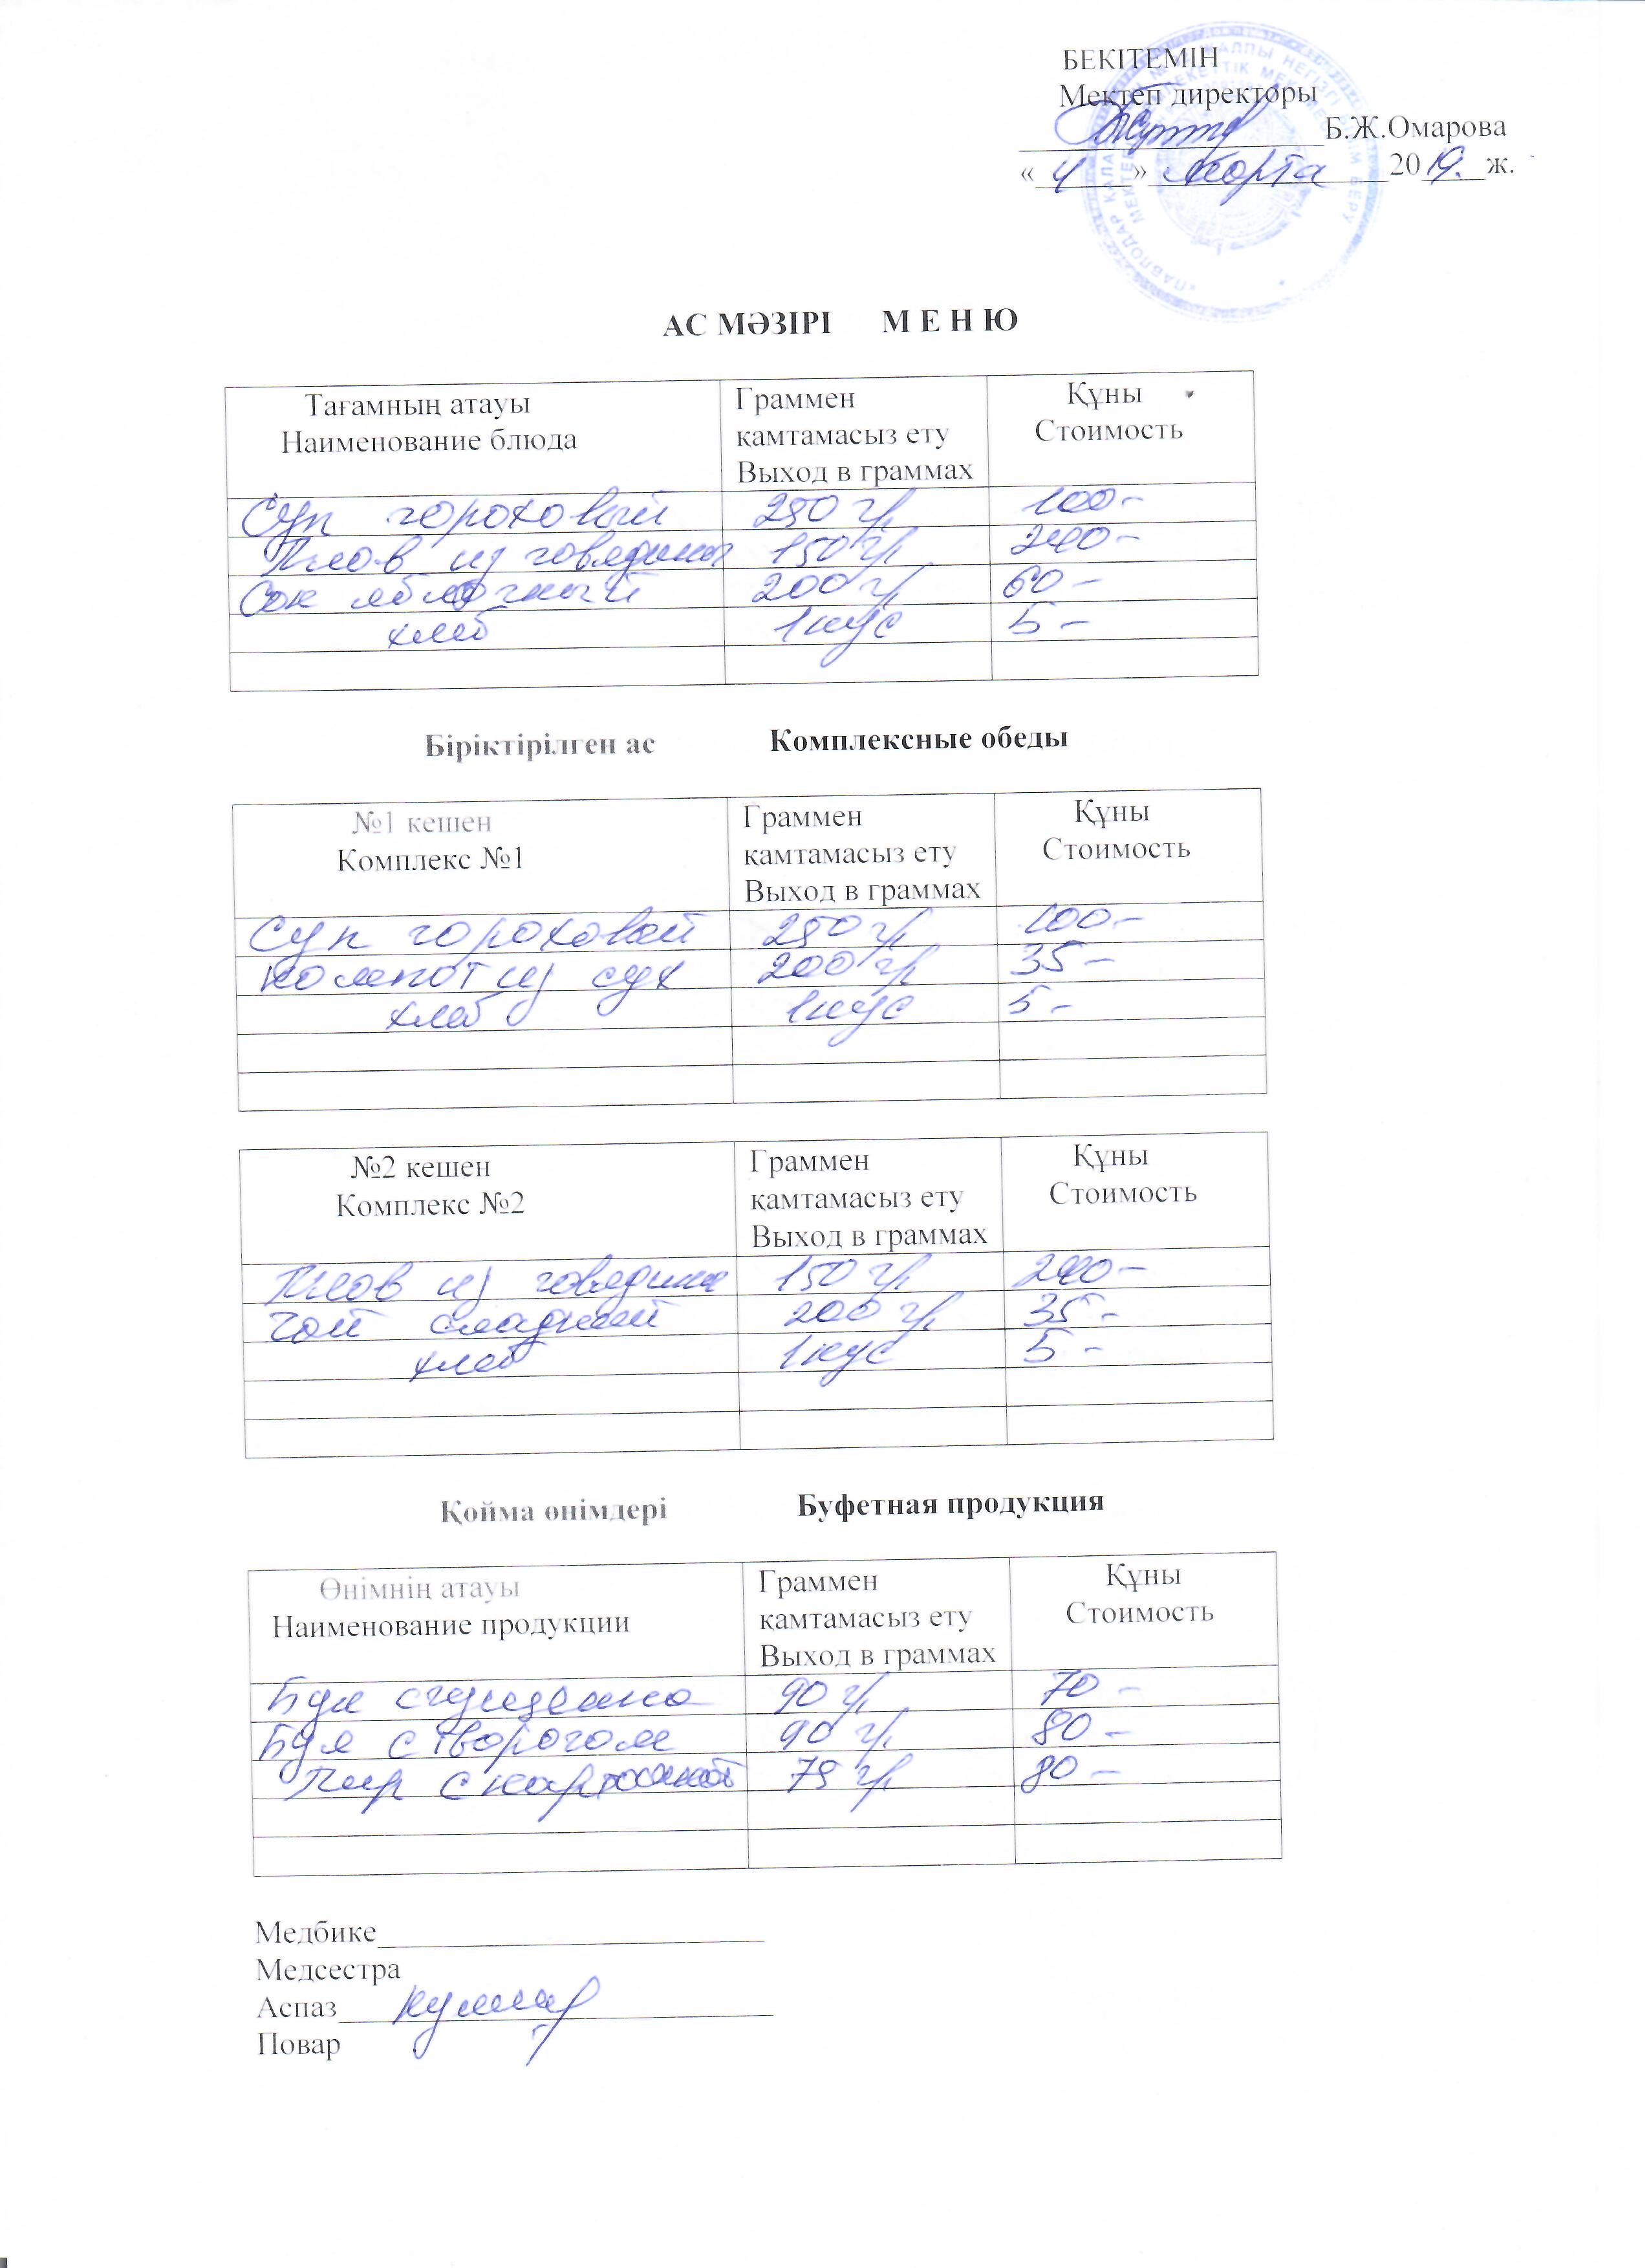 БЕКІТЕМІН
Мектеп директоры
Б.Ж.Омарова
« 4 » марта 2019. ж.
АС МӘЗІРІ М Е Н Ю
Тағамның атауы
Наименование блюда
Граммен
камтамасыз ету
Выход в граммах
Құны
Стоимость
Суп гороховый 250 гр 100-
Плов из говядины 150 гр 240-
Сок яблочный 200 гр 60-
хлеб 1 кус 5-
Біріктірілген ас Комплексные обеды
№1 кешен
Комплекс №1
Граммен
камтамасыз ету
Выход в граммах
Құны
Стоимость
Суп гороховый 250 гр 100-
компот из сух 200 гр 35-
хлеб 1 кус 5-
№2 кешен
Комплекс №2
Граммен
камтамасыз ету
Выход в граммах
Құны
Стоимость
Плов из говядины 150 гр 240-
Чай сладкий 200 гр 35-
хлеб 1 кус 5-
Қойма өнімдері Буфетная продукция
Өнімнің атауы
Наименование продукции
Граммен
камтамасыз ету
Выход в граммах
Құны
Стоимость
Бул 90 гр 70-
Бул с творогом 90 гр 80-
Пир с картошкой 75 гр 80-
Медбике
Медсестра
Аспаз
Повар